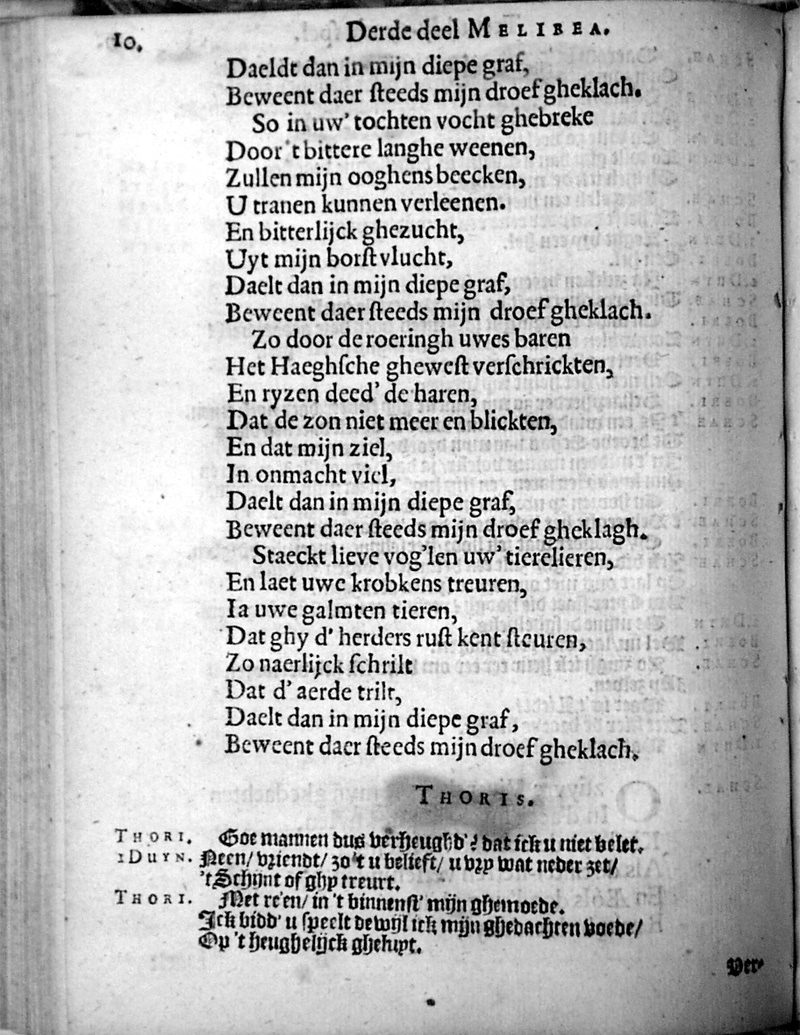 10.
Derde deel MELIBEA.
Daeldt dan in mijn diepe graf,
Beweent daer ſteeds mijn droef gheklach.
So in uw' tochten vocht ghebreke
Door 't bittere langhe weenen,
Zullen mijn ooghens beecken,
U tranen kunnen verleenen.
En bitterlijck ghezucht,
Uyt mijn borſt vlucht,
Daelt dan in mijn diepe graf,
Beweent daer ſteeds mijn droef gheklach.
Zo door de roeringh uwes baren
Het Haeghſche gheweſt verſchrickten,
En ryzen deed' de haren,
Dat de zon niet meer en blickten,
En dat mijn ziel,
In onmacht viel,
Daelt dan in mijn diepe graf,
Beweent daer ſteeds mijn droef gheklagh.
Staeckt lieve vog'len uw' tierelieren,
En laet uwe krobkens treuren,
Ia uwe galmten tieren,
Dat ghy d' herders ruſt kent ſteuren,
Zo naerlijck ſchrilt
Dat d' aerde trilt,
Daelt dan in mijn diepe graf,
Beweent daer ſteeds mijn droef gheklach.
THORIS.
THORI. Goe mannen dus verheughd'? dat ick u niet belet.
1 DUYN. Neen/ vriendt/ zo 't u belieft/ u vry wat neder zet/
't Schijnt of ghy treurt.
THORI. Met re'en/ in 't binnenſt' mijn ghemoede.
Ick bidd' u ſpeelt dewijl ick mijn ghedachten voede/
Op 't heughelijck ghehipt.
Ver-